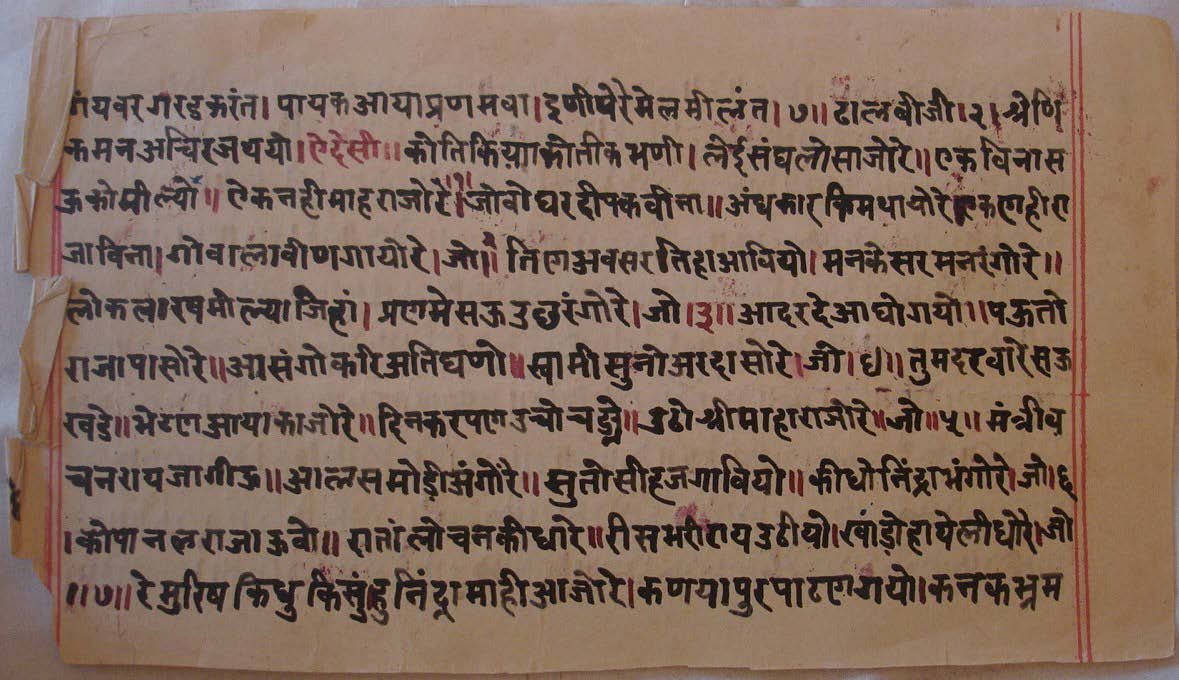 गंयवर गरडुकरंत। पायक आया प्रणमवा। इणीपेरे मेल मीलंत। ७॥ ढालबीजी।२। श्रेणि
कमन अचिरज थयो। ऐदेसी॥ कोतिकिया कोतीक भणी। लेई संघलो साजोरे॥ एक विना स
ऊको मील्यो॥ ऐक नही माहराजोरे॥१॥ जोवो घर दीपक वीना॥ अंधकार किम थायोरे। एक नही रा
जा विना। गोवाल वीण गायोरे। जो।२। तिण अवसर तिहा आवियो। मनकेसर मनरंगोरे॥
लोक लारष मील्या जिहां। प्रणमे सऊ उछरंगोरे। जो।३॥ आदर दे आघो गयो॥ पऊतो
राजा पासोरे॥ आसंगो करि अति घणो॥ स्वामी सुनो अरदासोरे। जी।४॥ तुम दरवारे सऊ
खडे॥ भेटण आया काजोरे॥ दिनकर पण उचो चड्यो॥ उठो श्री माहाराजोरे॥ जो॥५॥ मंत्री व
चन राय जागीऊ॥ आलस मोडी अंगोरे॥ सुतो सीह जगावियो॥ कीधो निंद्रा भंगोरे। जो।६
। कोपानल राजा ऊवो॥ रातां लोचन कीधारे॥ रीस भरी राय उठीयो। खांडो हाथे लीधोरे। जो
॥७॥ रे मुरिष किधु किसुं। हु निंद्रा माही आजोरे। कणयापुर पाटण गयो। कनकभ्रम